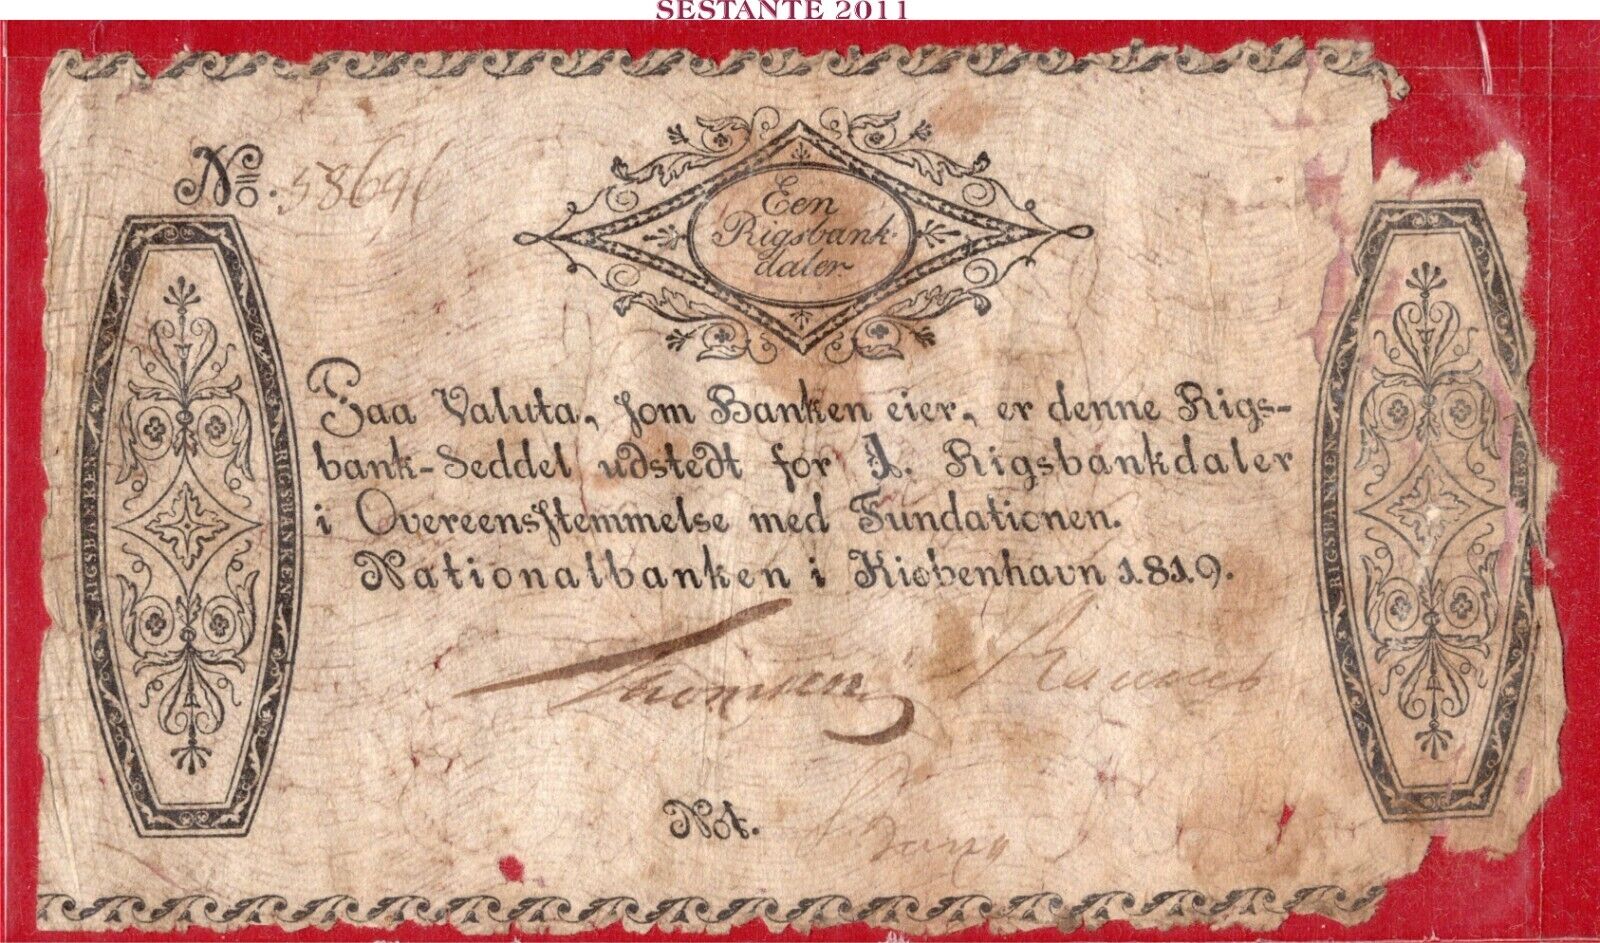 SESTANTE 2011
No. 58646
Een
Rigsbank-
daler
Paa Valuta, som Banken eier, er denne Rigs-
bank-Seddel udstedt for 1. Rigsbankdaler
i Overeensstemmelse med Fundationen.
Nationalbanken i Kiøbenhavn 1819.
Thomsen
Not.
RIGSBANKEN
RIGSBANKEN
RIGSBANKEN